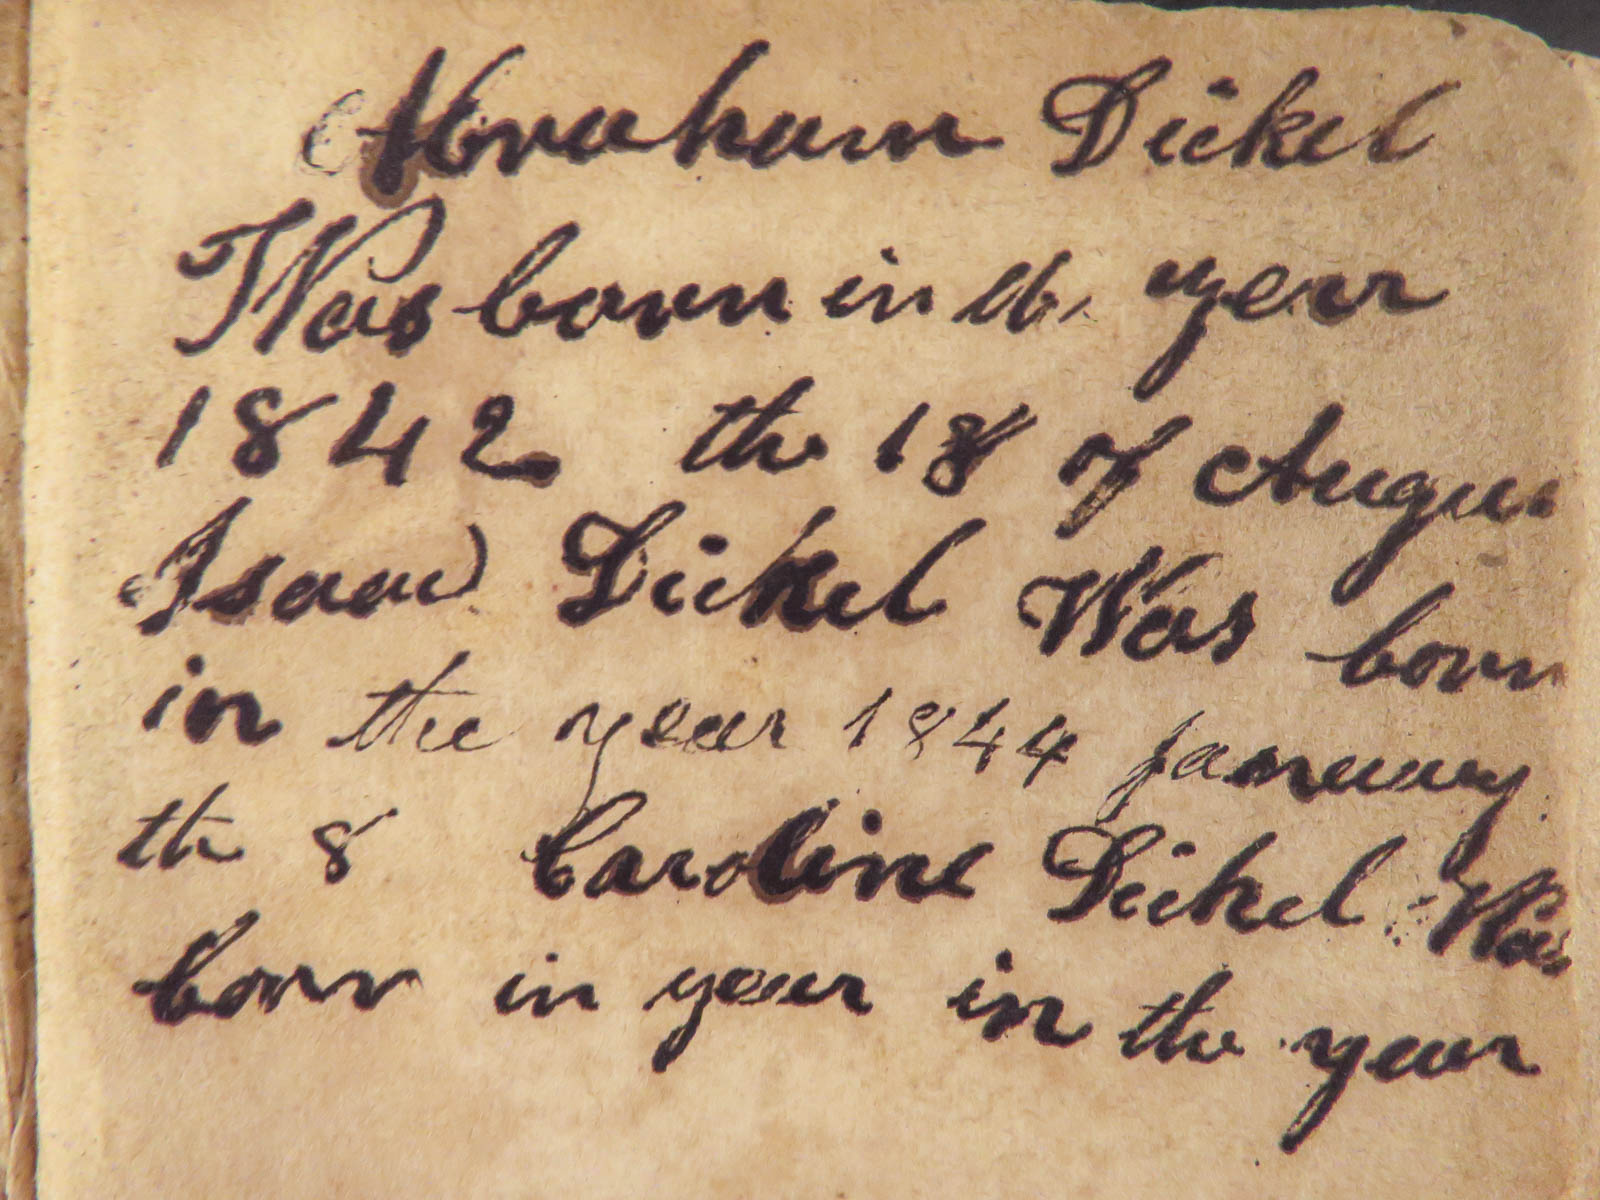 Abraham Dickel
Was born in the year
1842 the 18 of Augus
Isaac Dickel Was born
in the year 1844 January
the 8 Caroline Dickel Was
born in year in the year